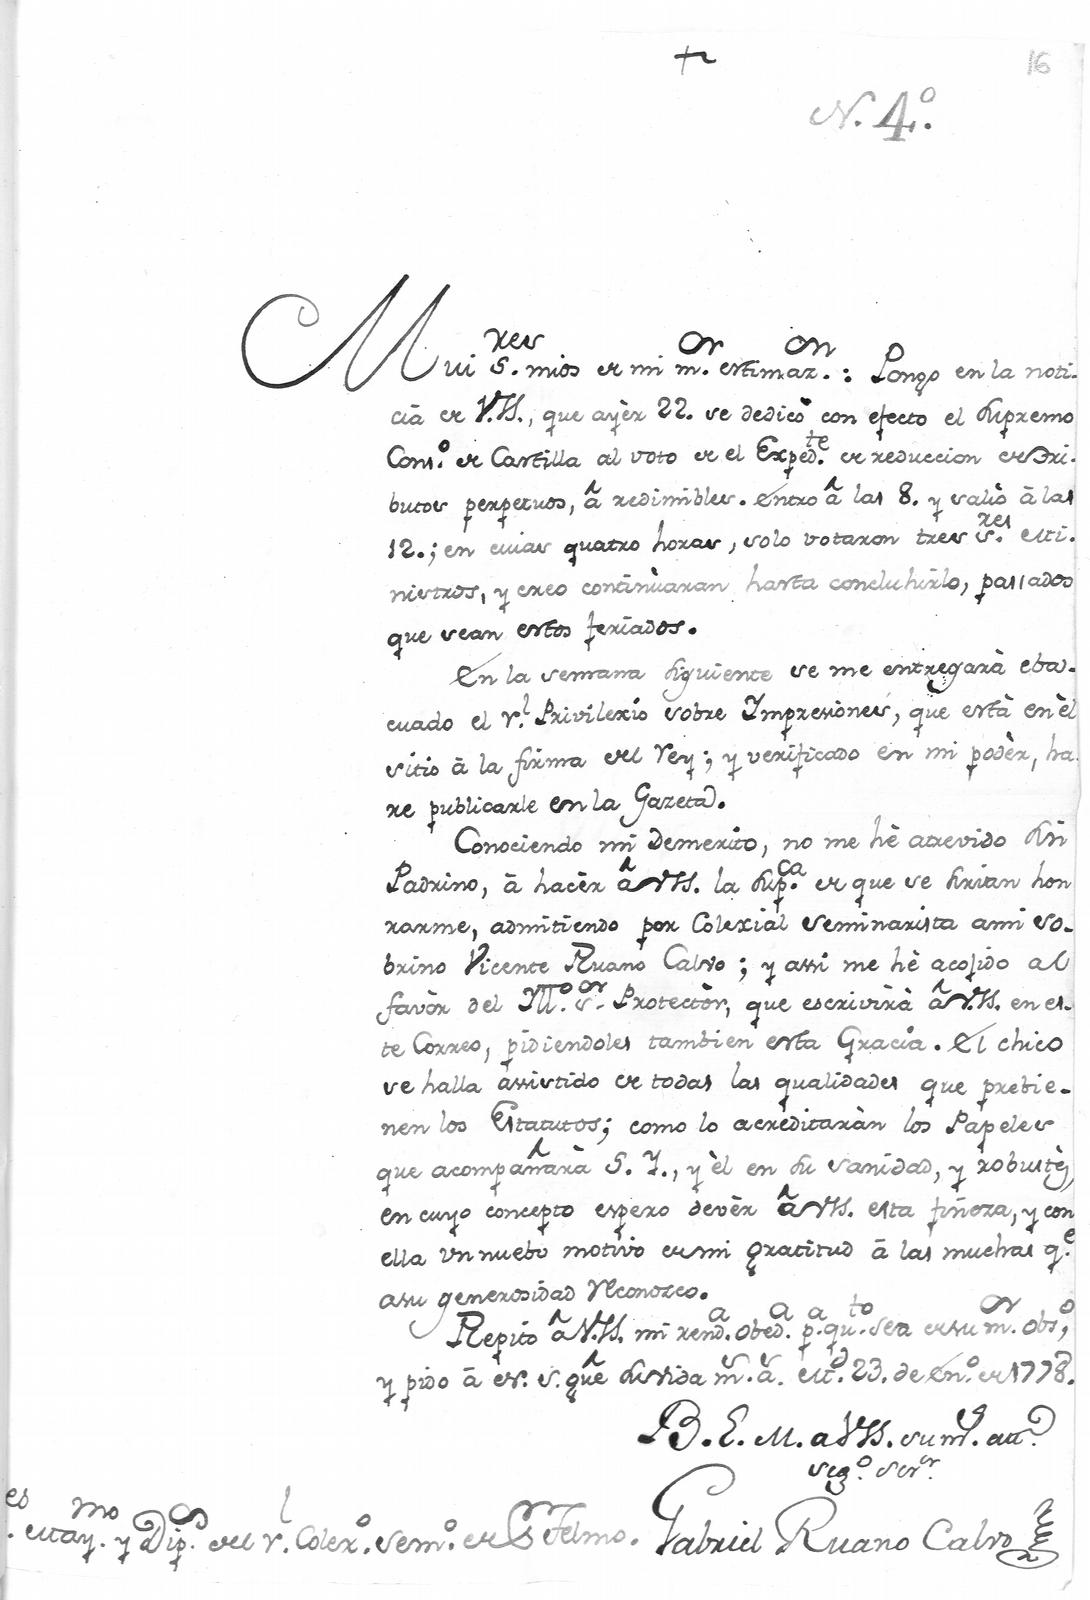 16
N. 4º.
Mui s.res mios de mi m.or estimaz.on: Pongo en la noti-
cia de V.SS., que ayèr 22. se dedicò con efecto el Supremo
Cons.º de Castilla al voto de el Exped.te de reduccion de Tri-
butos perpetuos, â redimibles. Entrò â las 8. y saliò à las
12.; en cuias quatro horas, solo votaron tres s.res Mi-
nistros, y creo continùaran hasta concluhirlo, passados
que sean estos feriados.
En la semana siguiente se me entregarà eba-
cuado el r.l Privilexio sobre Impresiones, que està en èl
sitio à la firma del Rey; y verificado en mi podèr, ha-
re publicarle en la Gazeta.
Conociendo mi Demerito, no me hè atrevido Sin
Padrino, à hacèr â VSS. la Sup.ca de que se Sirvan hon
rarme, admitiendo por Colexial Seminarista a mi so-
brino Vicente Ruano Calvo; y assi me hè acojido al
favòr del Yll.º s.or Protectòr, que escrivirà â V.SS. en es-
te Correo, pidiendoles tambien esta Gracia. El chico
se halla assistido de todas las qualidades que prebie-
nen los Estatutos; como lo acreditaràn los Papeles
que acompañarà S. Y., y èl en su sanidad, y robustèz,
en cuyo concepto espero devèr â VSS. esta fineza, y con
ella un nuebo motivo de mi gratitud à las muchas q.e
a su generosidad reconozco.
Repito â V.SS. mi rend.a obed.a p.a qu.to sea de su m.or obs,º
y pido à D.s. guê su vida m.s a.s Md.d 23. de En.º de 1778.
B. L. M. a VSS. su m.s att.º
seg.º ser.or
Gabriel Ruano Calvo
es . May.mo y Dip.s del r.l Colex.º Sem.º de S. Telmo.